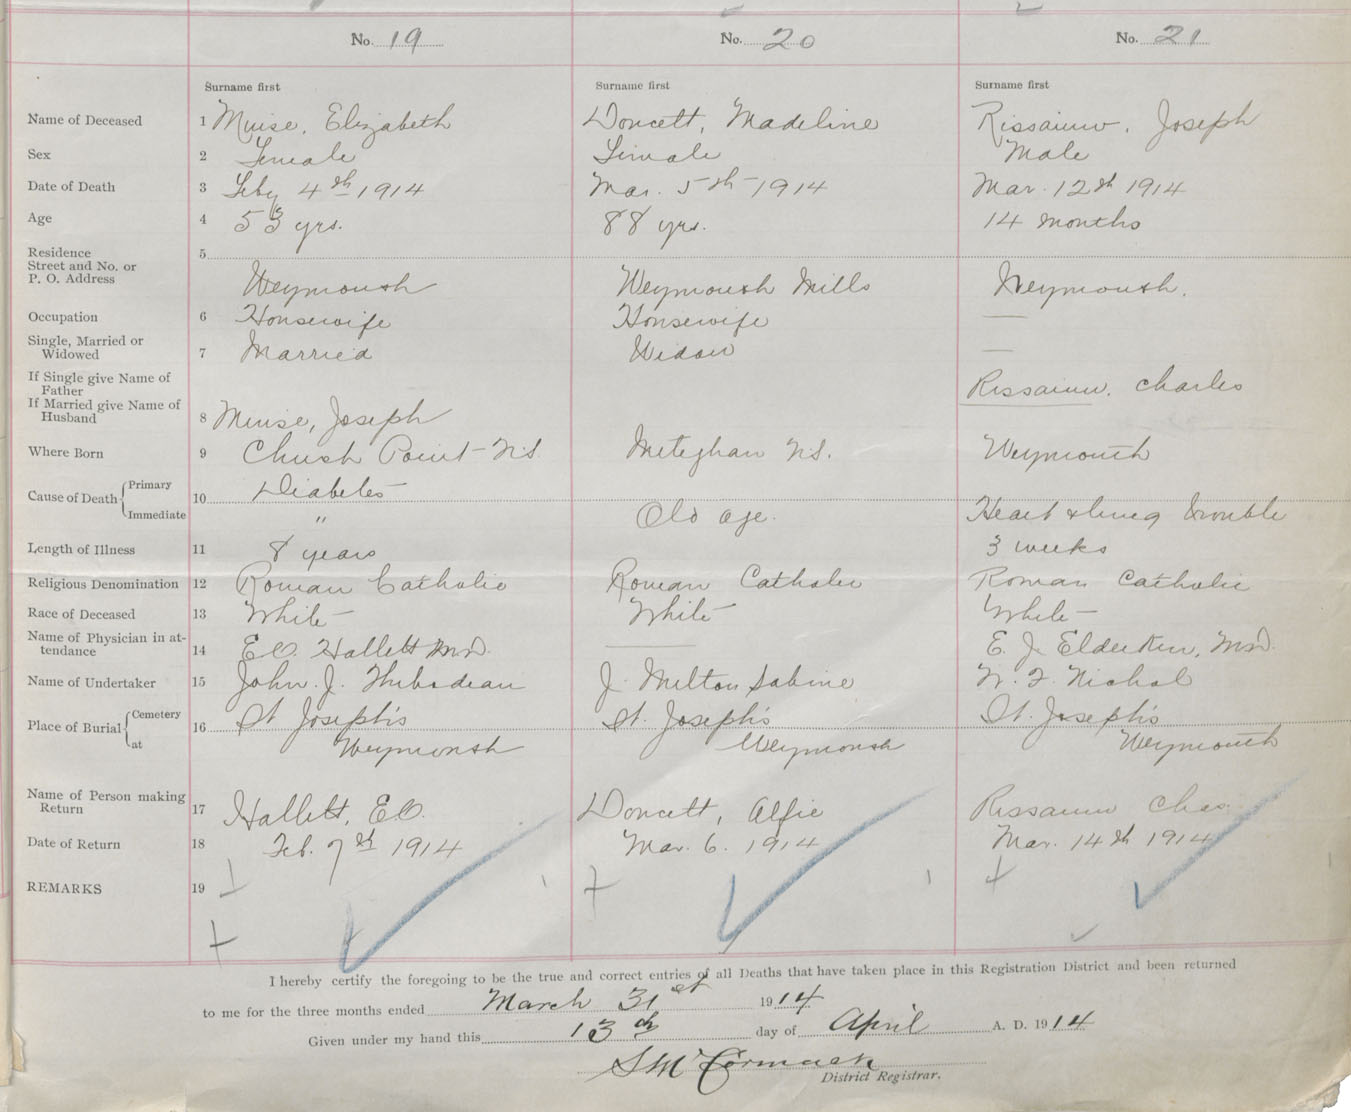 No. 19 No. 20 No. 21
Surname first Surname first Surname first
Name of Deceased 1 Muise, Elizabeth Doucett, Madeline Rissaiuw, Joseph
Sex 2 Female Female Male
Date of Death 3 Feby 4th 1914 Mar. 5th 1914 Mar. 12th 1914
Age 4 53 yrs. 88 yrs. 14 months
Residence 5
Street and No. or
P. O. Address Weymouth Weymouth Mills Weymouth.
Occupation 6 Housewife Housewife —
Single, Married or
Widowed 7 Married Widow —
If Single give Name of
Father Rissaiuw, Charles
If Married give Name of
Husband 8 Muise, Joseph
Where Born 9 Chush Point N.S. Meteghan N.S. Weymouth
Cause of Death { Primary 10 Diabetes
Immediate " Old age. Heart & lung trouble
Length of Illness 11 8 years 3 weeks
Religious Denomination 12 Roman Catholic Roman Catholic Roman Catholic
Race of Deceased 13 White White White
Name of Physician in at-
tendance 14 E.O. Hallett M.D. — E. J. Elderkin, M.D.
Name of Undertaker 15 John. J. Thibodeau J. Milton Sabine W. F. Nichol
Place of Burial { Cemetery 16 St Joseph's St. Joseph's St. Joseph's
at Weymouth Weymouth Weymouth
Name of Person making
Return 17 Hallett, E.O. Doucett, Alfie Rissaiuw Chas.
Date of Return 18 Feb. 7th 1914 Mar. 6. 1914 Mar. 14th 1914
REMARKS 19
I hereby certify the foregoing to be the true and correct entries of all Deaths that have taken place in this Registration District and been returned
to me for the three months ended March 31st 1914
Given under my hand this 13th day of April A. D. 1914
S McCormack
District Registrar.